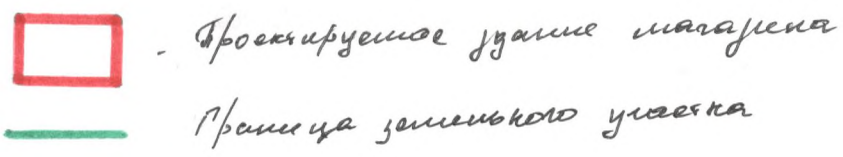 - Проектируемое здание магазина
Граница земельного участка